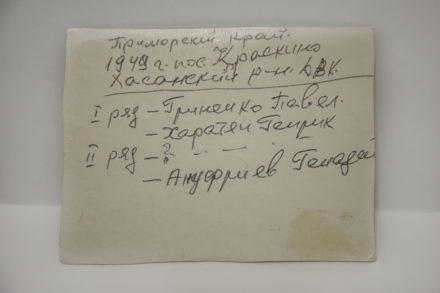 Приморский край.
1949 г. пос. Краскино
Хасанский р-н. ДВК.
I ряд – Гриненко Павел.
– Харатян Генрик
II ряд – ?
– Ануфриев Генадей